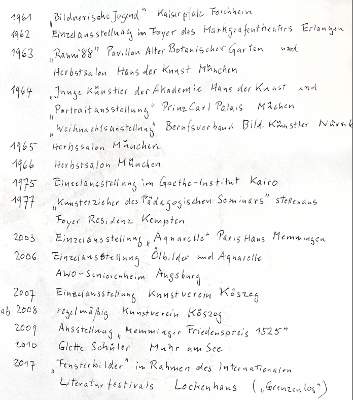 1961 „Bildnerische Jugend" Kaiserpfalz Forchheim
1962 Einzelausstellung im Foyer des Markgrafentheaters Erlangen
1963 „Raum '88" Pavillon Alter Botanischer Garten und
Herbstsalon Haus der Kunst München
1964 „Junge Künstler der Akademie Haus der Kunst und
„Portraitausstellung" Prinz Carl Palais München
„Weihnachtsausstellung" Berufsverband Bild. Künstler
1965 Herbstsalon München
1966 Herbstsalon München
1975 Einzelausstellung im Goethe-Institut Kairo
1977 „Kunsterzieher des Pädagogischen Seminars"
Foyer Residenz Kempten
2003 Einzelausstellung „Aquarelle" Paris Haus Memmingen
2006 Einzelausstellung Ölbilder und Aquarelle
AWO-Seniorenheim Augsburg
2007 Einzelausstellung Kunstverein Köszeg
ab 2008 regelmäßig Kunstverein Köszeg
2009 Ausstellung „Memminger Friedenspreis 1525"
2010 Glette Schüler Muhr am See
2017 „Fensterbilder" im Rahmen des internationalen
Literaturfestivals Lockenhaus („Grenzenlos")